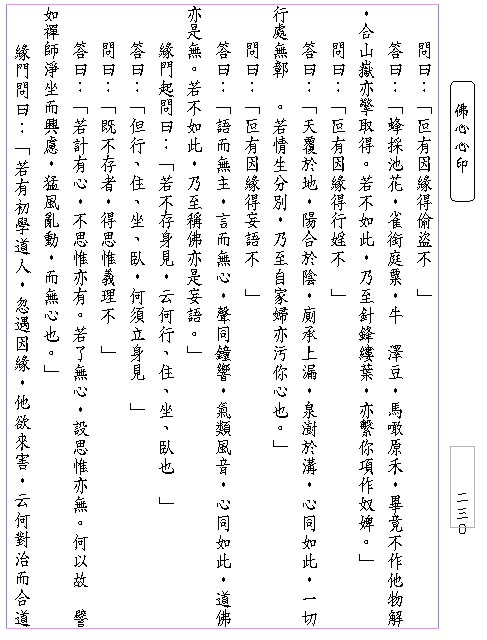 佛心心印
問曰：「叵有因緣得偷盜不　」
答曰：「蜂採池花，雀銜庭粟，牛　澤豆，馬噉原禾，畢竟不作他物解
，合山嶽亦擎取得。若不如此，乃至針鋒縷葉，亦繫你項作奴婢。」
問曰：「叵有因緣得行婬不　」
答曰：「天覆於地，陽合於陰，廁承上漏，泉澍於溝，心同如此，一切
行處無鄣　。若情生分別，乃至自家婦亦污你心也。」
問曰：「叵有因緣得妄語不　」
答曰：「語而無主，言而無心，聲同鐘響，氣類風音，心同如此，道佛
亦是無。若不如此，乃至稱佛亦是妄語。」
緣門起問曰：「若不存身見，云何行、住、坐、臥也　」
答曰：「但行、住、坐、臥，何須立身見　」
問曰：「既不存者，得思惟義理不　」
答曰：「若計有心，不思惟亦有。若了無心，設思惟亦無。何以故　譬
如禪師淨坐而興慮，猛風亂動，而無心也。」
緣門問曰：「若有初學道人，忽遇因緣，他欲來害，云何對治而合道
二三○